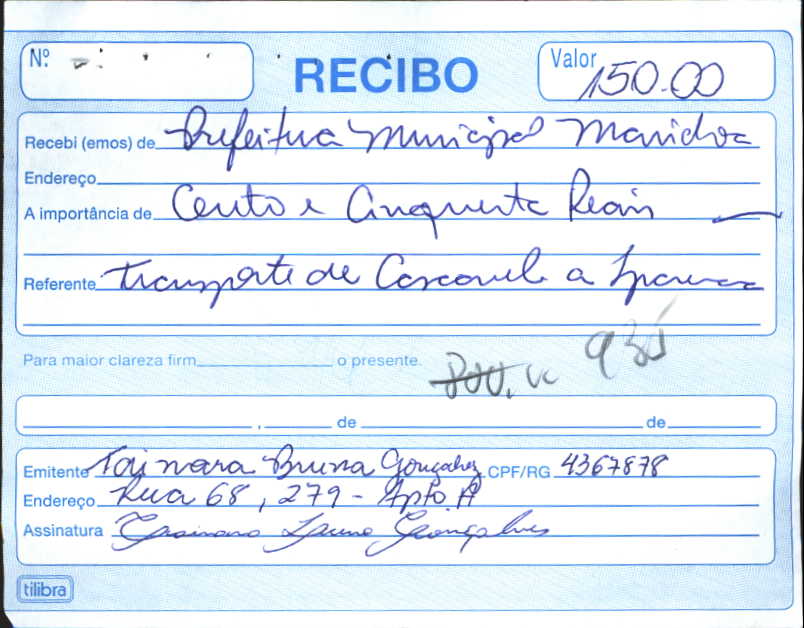 Nº RECIBO Valor 150.00
Recebi (emos) de Prefeitura Municipal
Endereço
A importância de Cento e Cinquenta Reais
Referente Transporte de Cascavel a
Para maior clareza firm o presente.
935
, de de
Emitente Bruna Gonçalves CPF/RG 4367878
Endereço Rua 68, 279 - Apto. A
Assinatura Bruna Gonçalves
tilibra